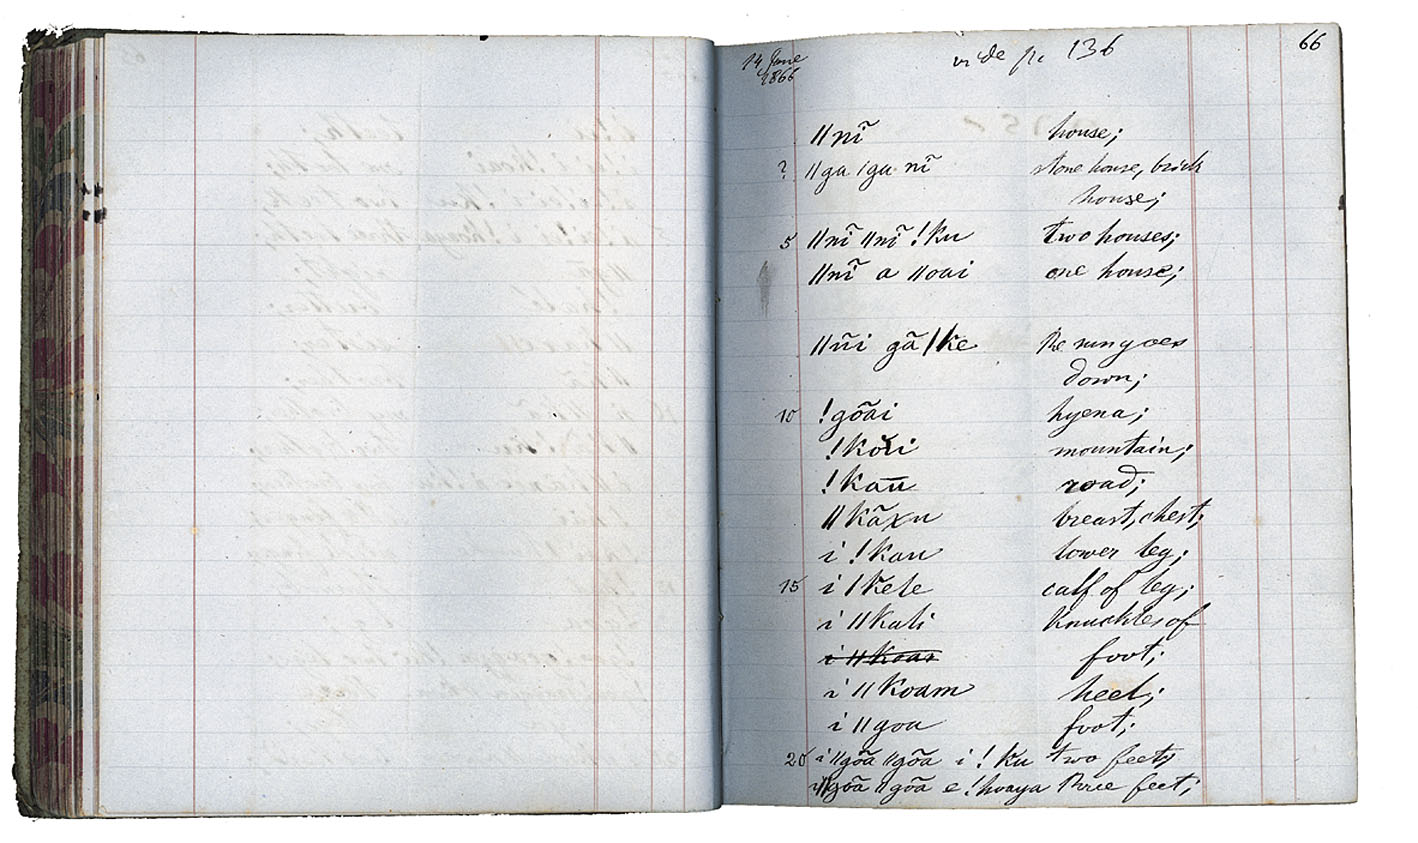 14 June vide p. 136 66
1866
ǁnĩ house;
? ǁga ǀga nĩ stone house, brick
house;
5 ǁnĩ ǁnĩ !ku two houses;
ǁnĩ a ǁoai one house;
ǁũi gã ǀke the sun goes
down;
10 !gõãi hyena;
mountain;
!kau road;
ǁkãxu breast, chest;
i !kau lower leg;
15 i ǀkele calf of leg;
i ǁkuli knuckles of
foot;
i ǁkoam heel;
i ǁgoa foot;
20 i ǁgõã ǁgõã i !ku two feet;
ǁgõã ǁgõã e !hoaya three feet;